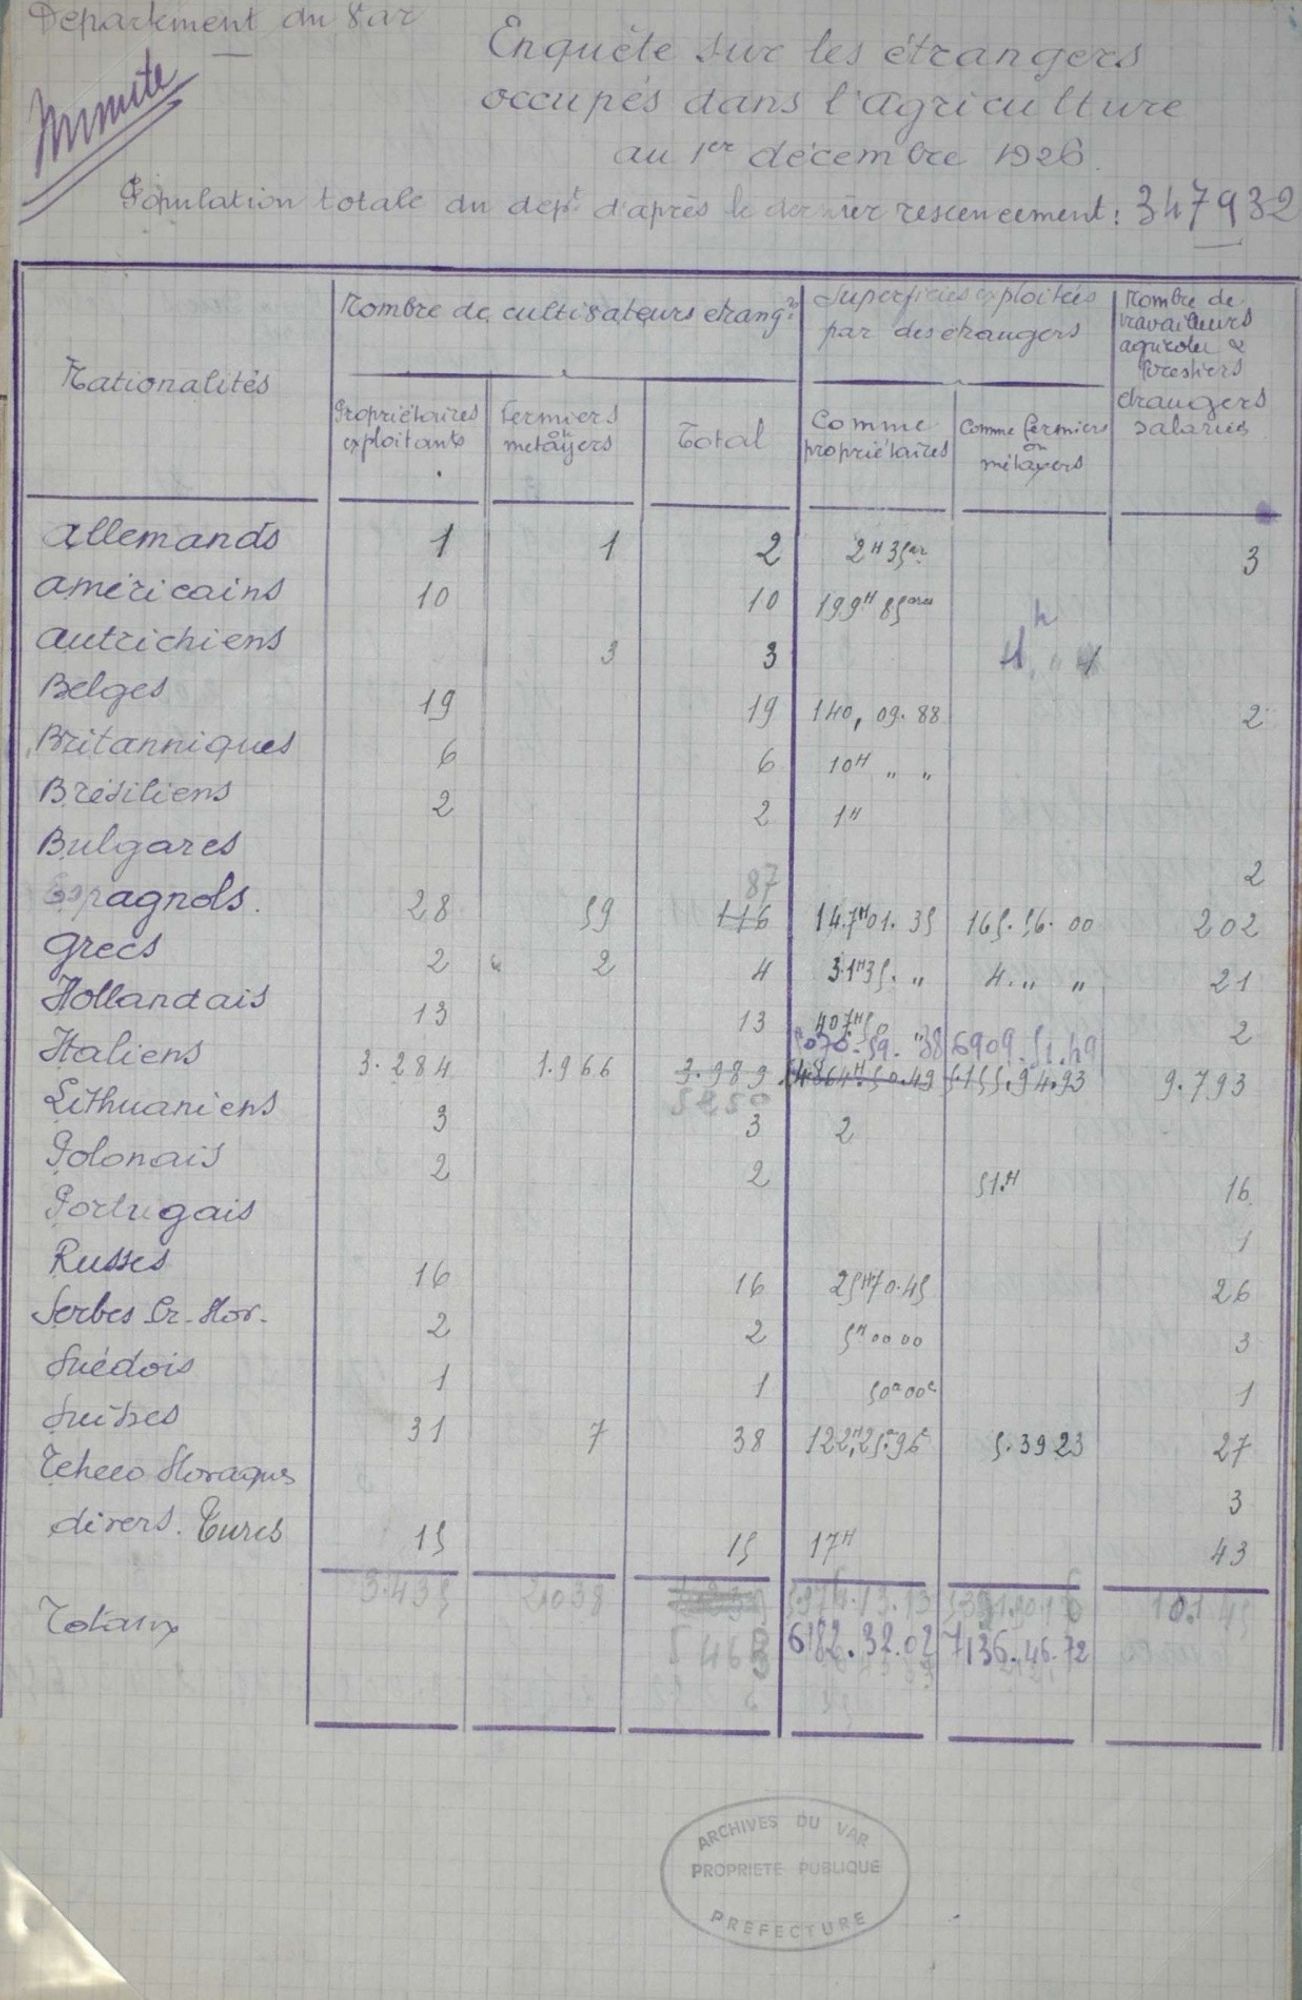 Département du Var
Minute
Enquête sur les étrangers
occupés dans l'agriculture
au 1er décembre 1926.
Population totale du dept d'après le dernier rescencement : 347932
Nationalités
Nombre de cultivateurs étrangrs
Propriétaires exploitants
Fermiers ou metayers
Total
Superficies exploitées par des étrangers
Comme propriétaires
Comme fermiers ou métayers
Nombre de travailleurs agricoles & forestiers étrangers salariés
Allemands 1 1 2 2H 35ar 3
Américains 10 10 199H 85ares
Autrichiens 3 3
Belges 19 19 140, 09. 88 2
Britanniques 6 6 10H " "
Brésiliens 2 2 1H
Bulgares 2
87
Espagnols. 28 59 116 147H01. 35 165. 56. 00 202
Grecs 2 2 4 31H35. " 4. " " 21
Hollandais 13 13 407H50 2
6909. 51. 49
Italiens 3.284 1.966 3.989 4.864H.50.49 5.155.94.93 9.793
5250
Lithuaniens 3 3 2
Polonais 2 2 51.H 16
Portugais 1
Russes 16 16 25H70.45 26
Serbes Cr. Slov. 2 2 5H 00 00 3
Suédois 1 1 50a00c 1
Suisses 31 7 38 122H,25a.96c 5. 39 23 27
Tcheco Slovaques 3
divers. Turcs 15 15 17H 43
Totaux 3.435 2.038 10.145
5463 6182. 32. 02 7136. 46. 72
ARCHIVES DU VAR
PROPRIETE PUBLIQUE
PREFECTURE